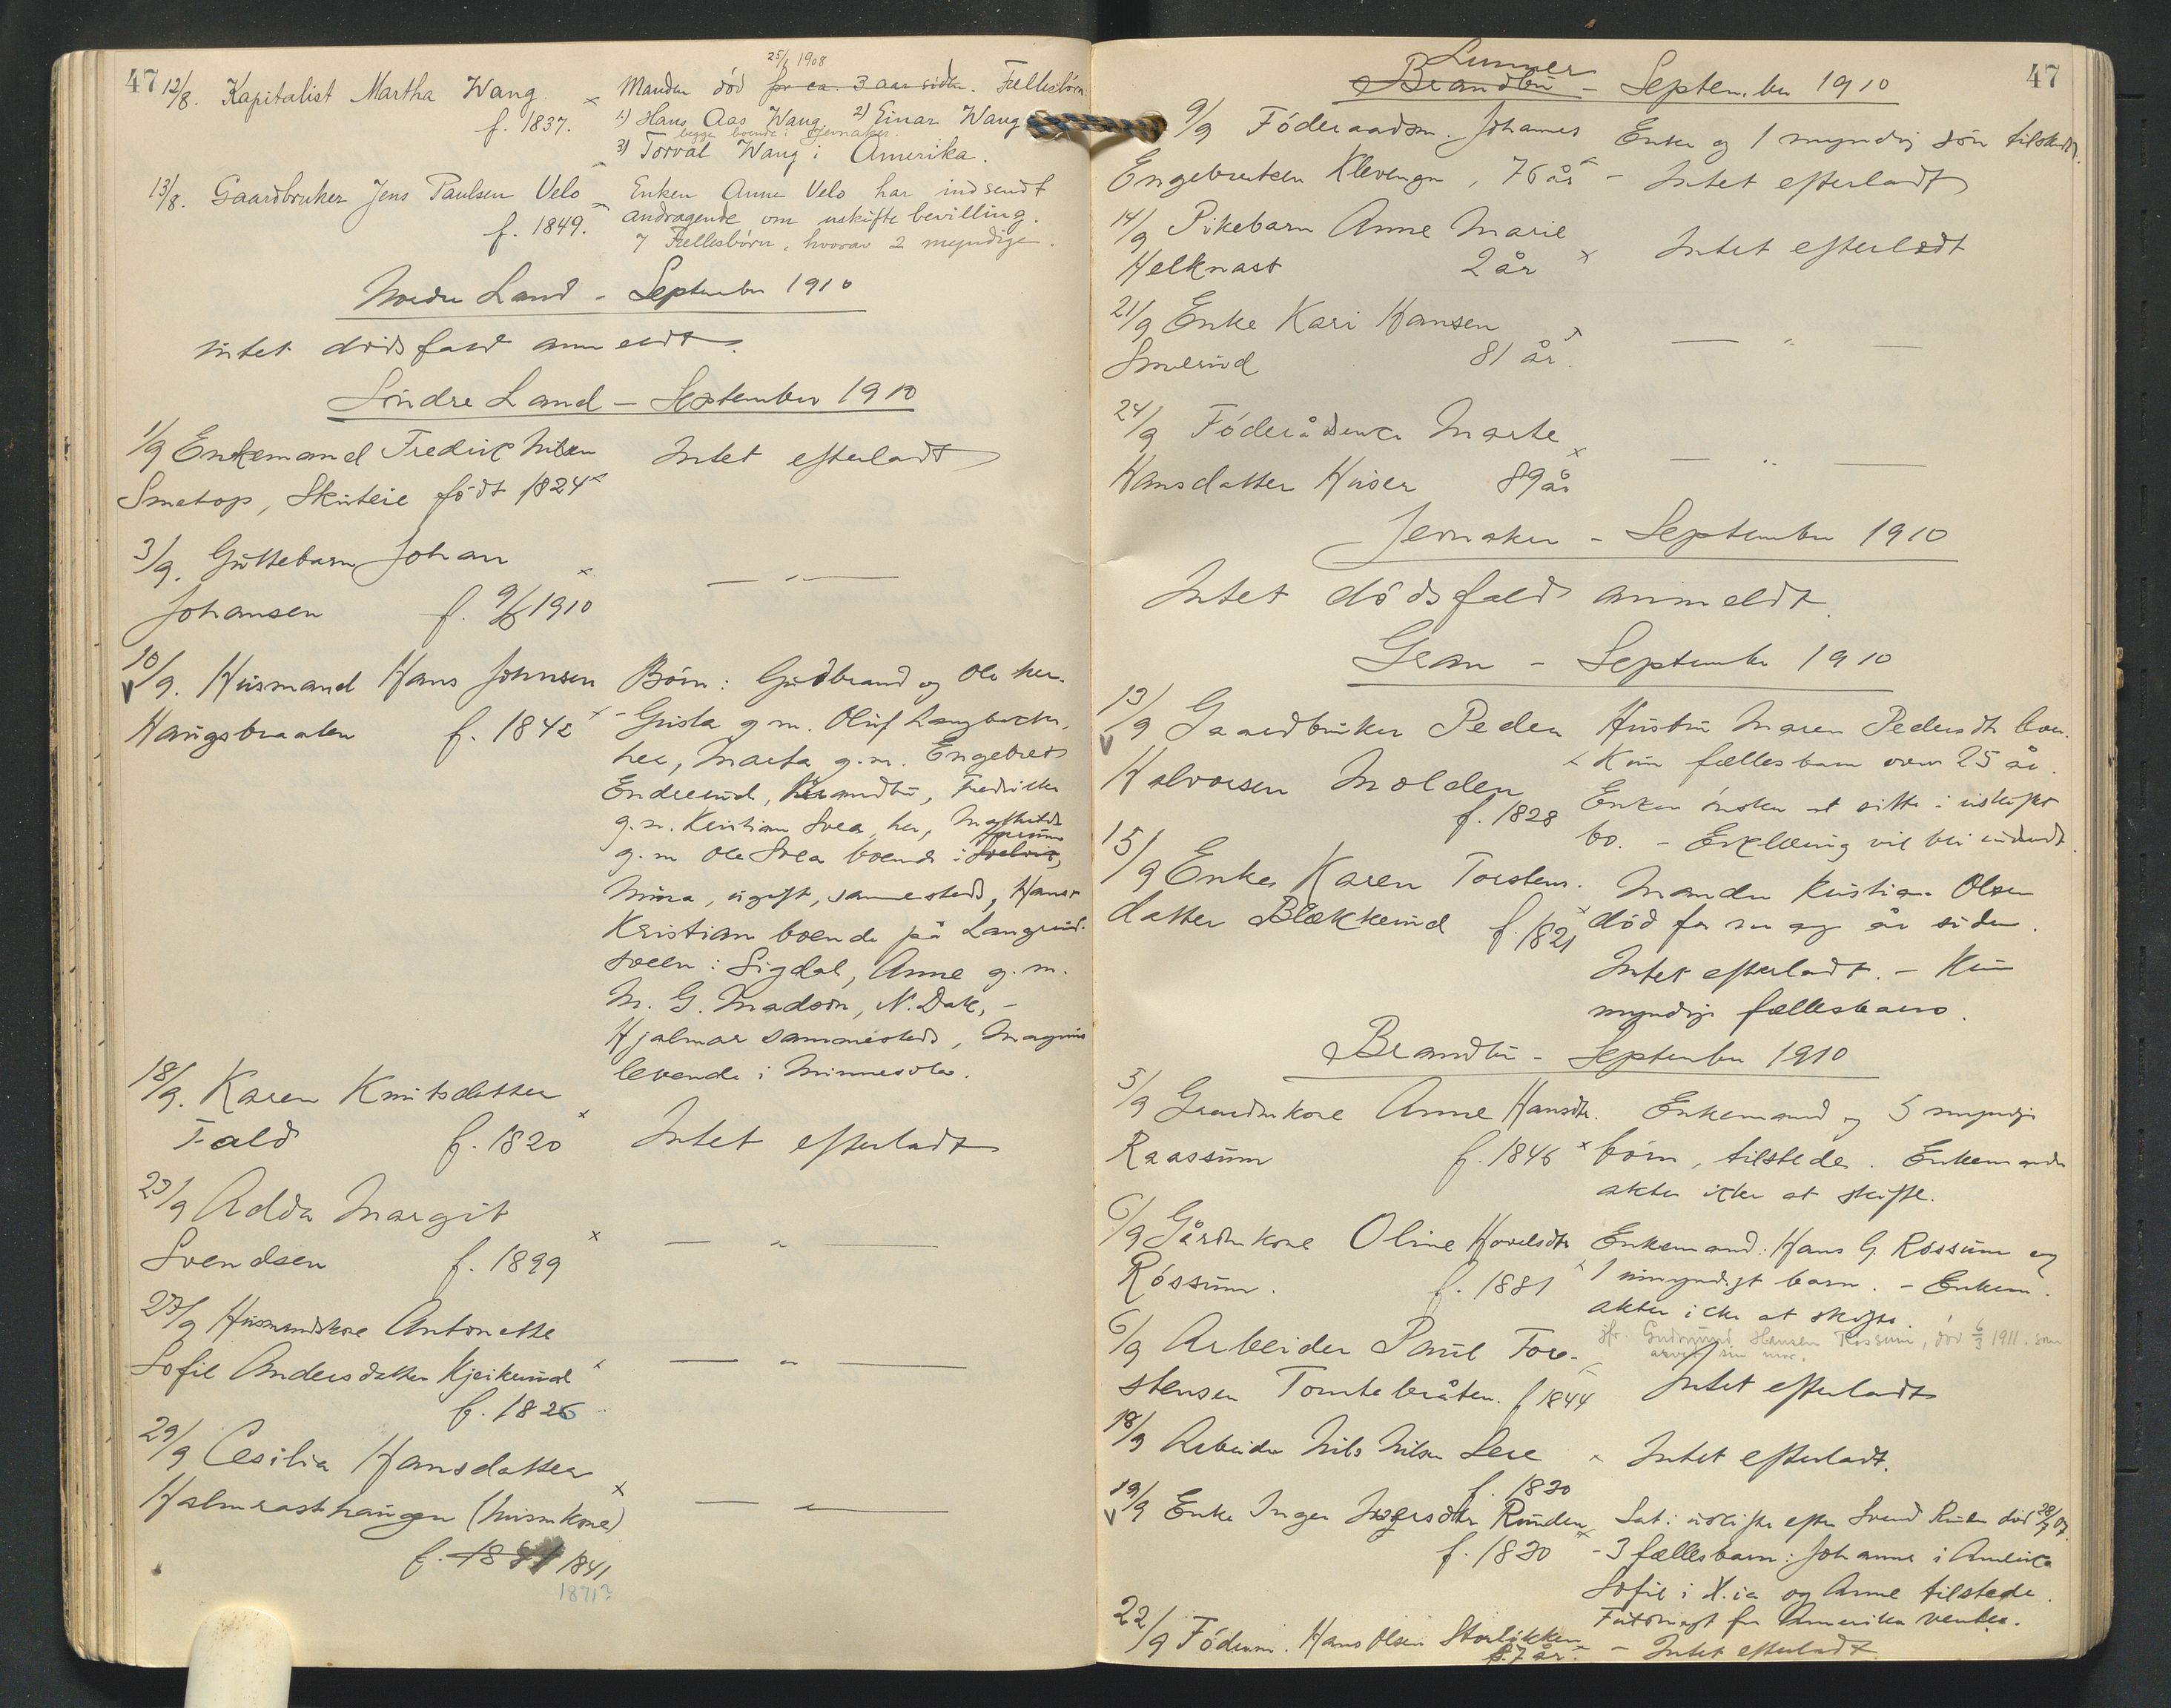 47
12/8. Kapitalist Martha Wang × Manden död for ca. 3 aar siden. Fællesbörn
25/1 1908
f. 1837. 1) Hans Aas Wang 2) Einar Wang
begge boende i Jevnaker
3) Torval Wang i Amerika.
13/8. Gaardbruker Jens Paulsen Velo Enken Anne Velo har indsendt
f. 1849. andragende om uskiftebevilling.
7 Fællesbörn, hvorav 2 myndige.
Nordre Land - September 1910
intet dödsfald anmeldt.
Söndre Land - September 1910
1/9 Enkemand Fredrik Nilsen Intet efterladt
Smetop, Skuteie födt 1824 ×
3/9. Guttebarn Johan × — " —
Johansen f. 9/6 1910
10/9. Husmand Hans Johnsen Börn: Gudbrand og Ole her.
V
Haugsbraaten f. 1842 × - Gusta g.m. Oluf Langbakken,
her, Marta g.m. Engebret
Endrerud, Brandbu, Fredrikke
g.m. Kristian Svea, her,
g.m Ole Svea boende i
Mina, ugift, sammesteds, Hans
Kristian boende på Langrud-
sveen i Sigdal, Anne g.m.
M. G. Madson, N. Dak, -
Hjalmar sammesteds, Magnus
levende i Minnesota.
18/9. Karen Knutsdatter
Fald f. 1820 × Intet efterladt
23/9 Adda Margit
Svendsen f. 1899 × — " —
27/9 Husmandskone Antonette
Sofie Andersdatter Kjeikerud × — " —
f. 1826
29/9 Cesilia Hansdatter
Halmrasthaugen (husmkone) × — " —
f. 1841
1871?
47
Lunner
Brandbu - September 1910
9/9 Föderaadsm. Johannes Enke og 1 myndig sön tilstede.
Engebretsen Klevengen, 76 år - Intet efterladt
14/9 Pikebarn Anne Marie Intet efterladt
Helknast 2 år ×
21/9 Enke Kari Hansen
Smerud 81 år. × — " —
24/9 Föderådsenke Marte ×
Hansdatter Huser 89 år — " —
Jevnaker - September 1910
Intet dödsfald anmeldt.
Gran - September 1910
13/9 Gaardbruker Peder Hustru Maren Pedersdtr lever.
V
Halvorsen Molden × Kun fællesbarn over 25 år.
f. 1828 Enken önsker at sitte i uskiftet
bo. - Erklæring vil bli indsendt.
15/9 Enke Karen Torstens- Manden Kristian Olsen
datter Blækkerud f. 1821 × död for 20 år siden.
Intet efterladt. - Kun
myndige fællesbarn.
Brandbu - September 1910
5/9 Gaardmkone Anne Hansdtr. Enkemand og 5 myndige
Raassum f. 1846 × börn, tilstede. Enkemanden
akter ikke at skifte.
6/9 Gårdmkone Oline Hovelsdtr Enkemand: Hans G. Røssum og
Røssum. f. 1881 × 1 umyndigt barn. - Enkem.
akter icke at skifte.
jfr. Gudmund Hansen Røssum, död 6/3 1911. som
arving sin mor.
6/9 Arbeider Paul Tor-
stensen Tomtebråten. f 1844 Intet efterladt
18/9 Arbeider Nils Nilsen Lere × Intet efterladt.
f. 1830
19/9 Enke Inger Runden Sat i uskifte efter Svend Ruden död
V
f. 1830 - 3 fællesbarn: Johanne i Amerika
Sofie i X.ia og Anne tilstede.
Fuldmagt fra Amerika ventes.
22/9 Föderm. Hans Olsen Storlökken × - Intet efterladt
87 år.